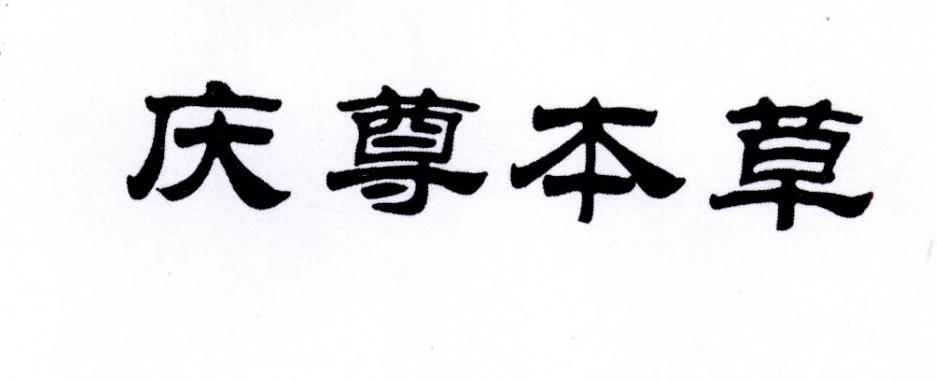 庆尊本草